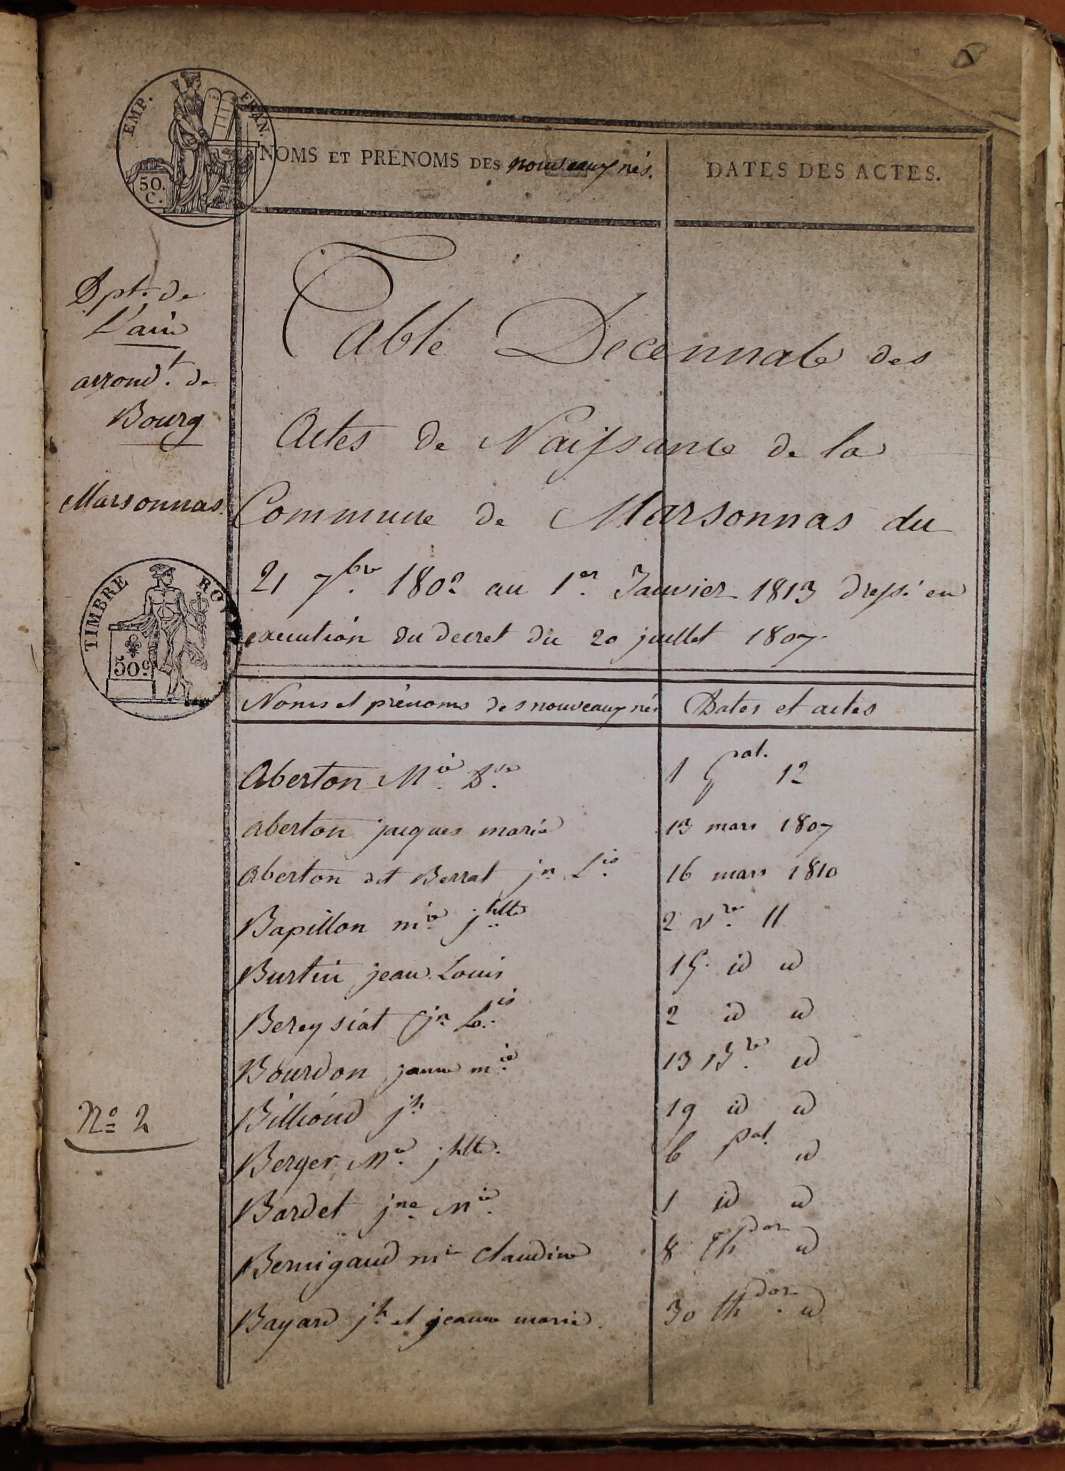 8
EMP. FRAN.
50. C.
NOMS ET PRÉNOMS DES nouveaux nés.
DATES DES ACTES.
Dpt. de
L'ain
arrond.t de
Bourg
Marsonnas.
TIMBRE ROYAL
50 c
Table Decennale des
Actes de Naissance de la
Commune de Marsonnas du
21 7bre 1802 au 1er Janvier 1813 dressé en
execution du decret du 20 juillet 1807.
Noms et prénoms des nouveaux nés
Dates et actes
Aberton Mie Dse
1 Gnal. 12
aberton jacques marie
13 mars 1807
Aberton dit Berrat jn Lis
16 mars 1810
Bapillon mie jhtte
2 vre 11
Burtin jean Louis
15 id id
Bereysiat jn Lis
2 id id
Bourdon janne mie
13 Bre id
Billioud jh
19 id id
Berger Mie jhtte
6 Pal. id
Bardet jne Mie
1 id id
Bernigaud mie Claudine
8 thdor id
Bayard jh et jeanne marie.
30 thdor id
No 2